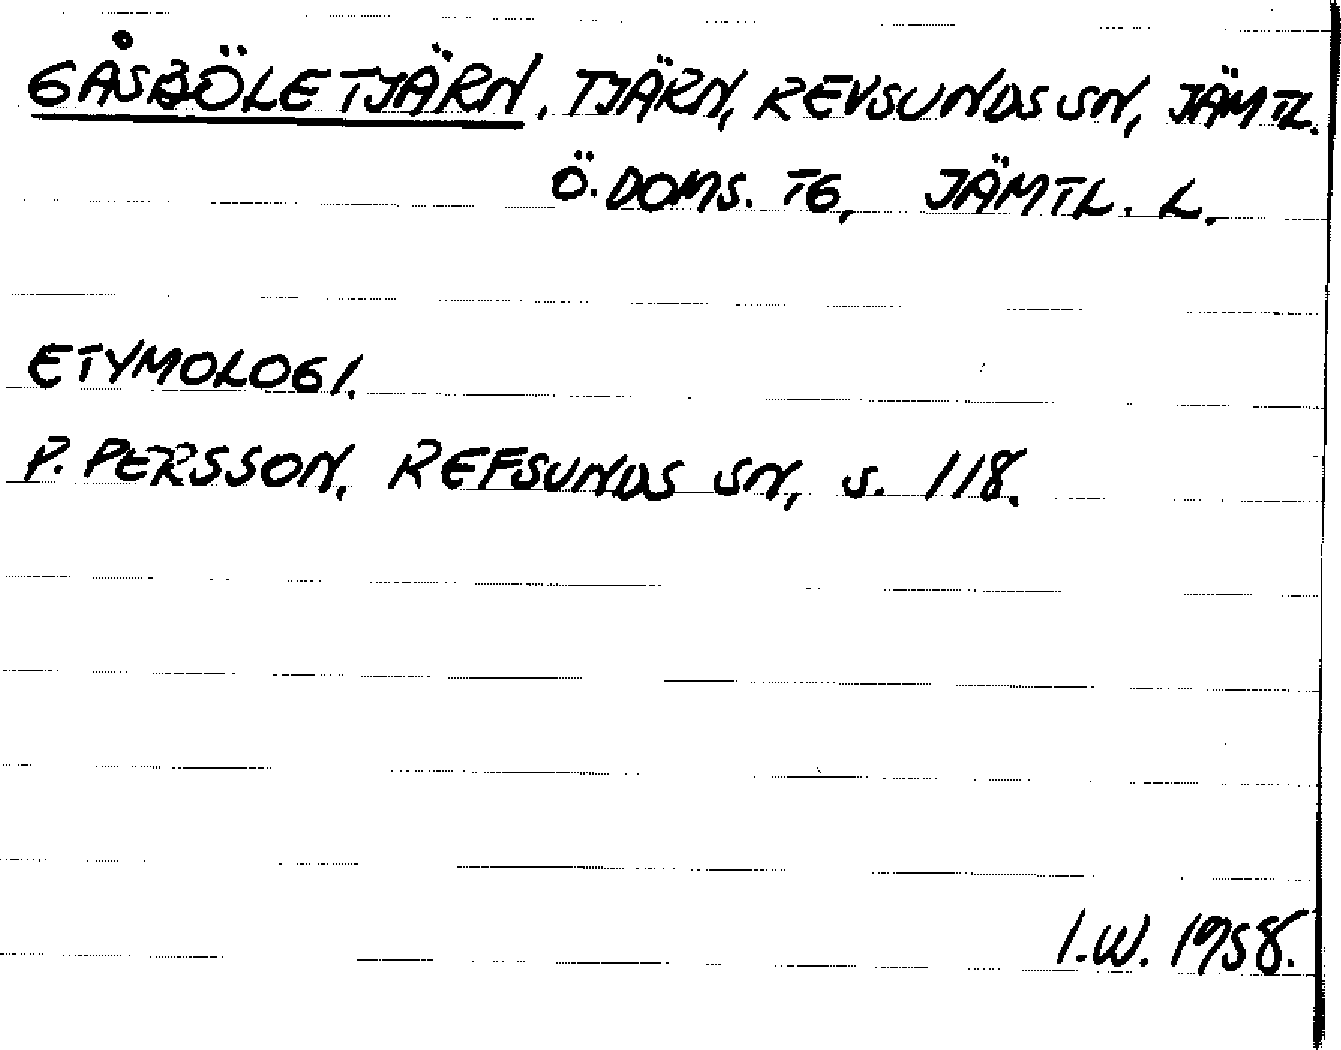 GÅSBÖLETJÄRN. TJÄRN, REVSUNDS SN, JÄMTL.
Ö. DOMS. TG, JÄMTL. L.
ETYMOLOGI.
P. PERSSON, REFSUNDS SN, S. 118.
I.W. 1958.